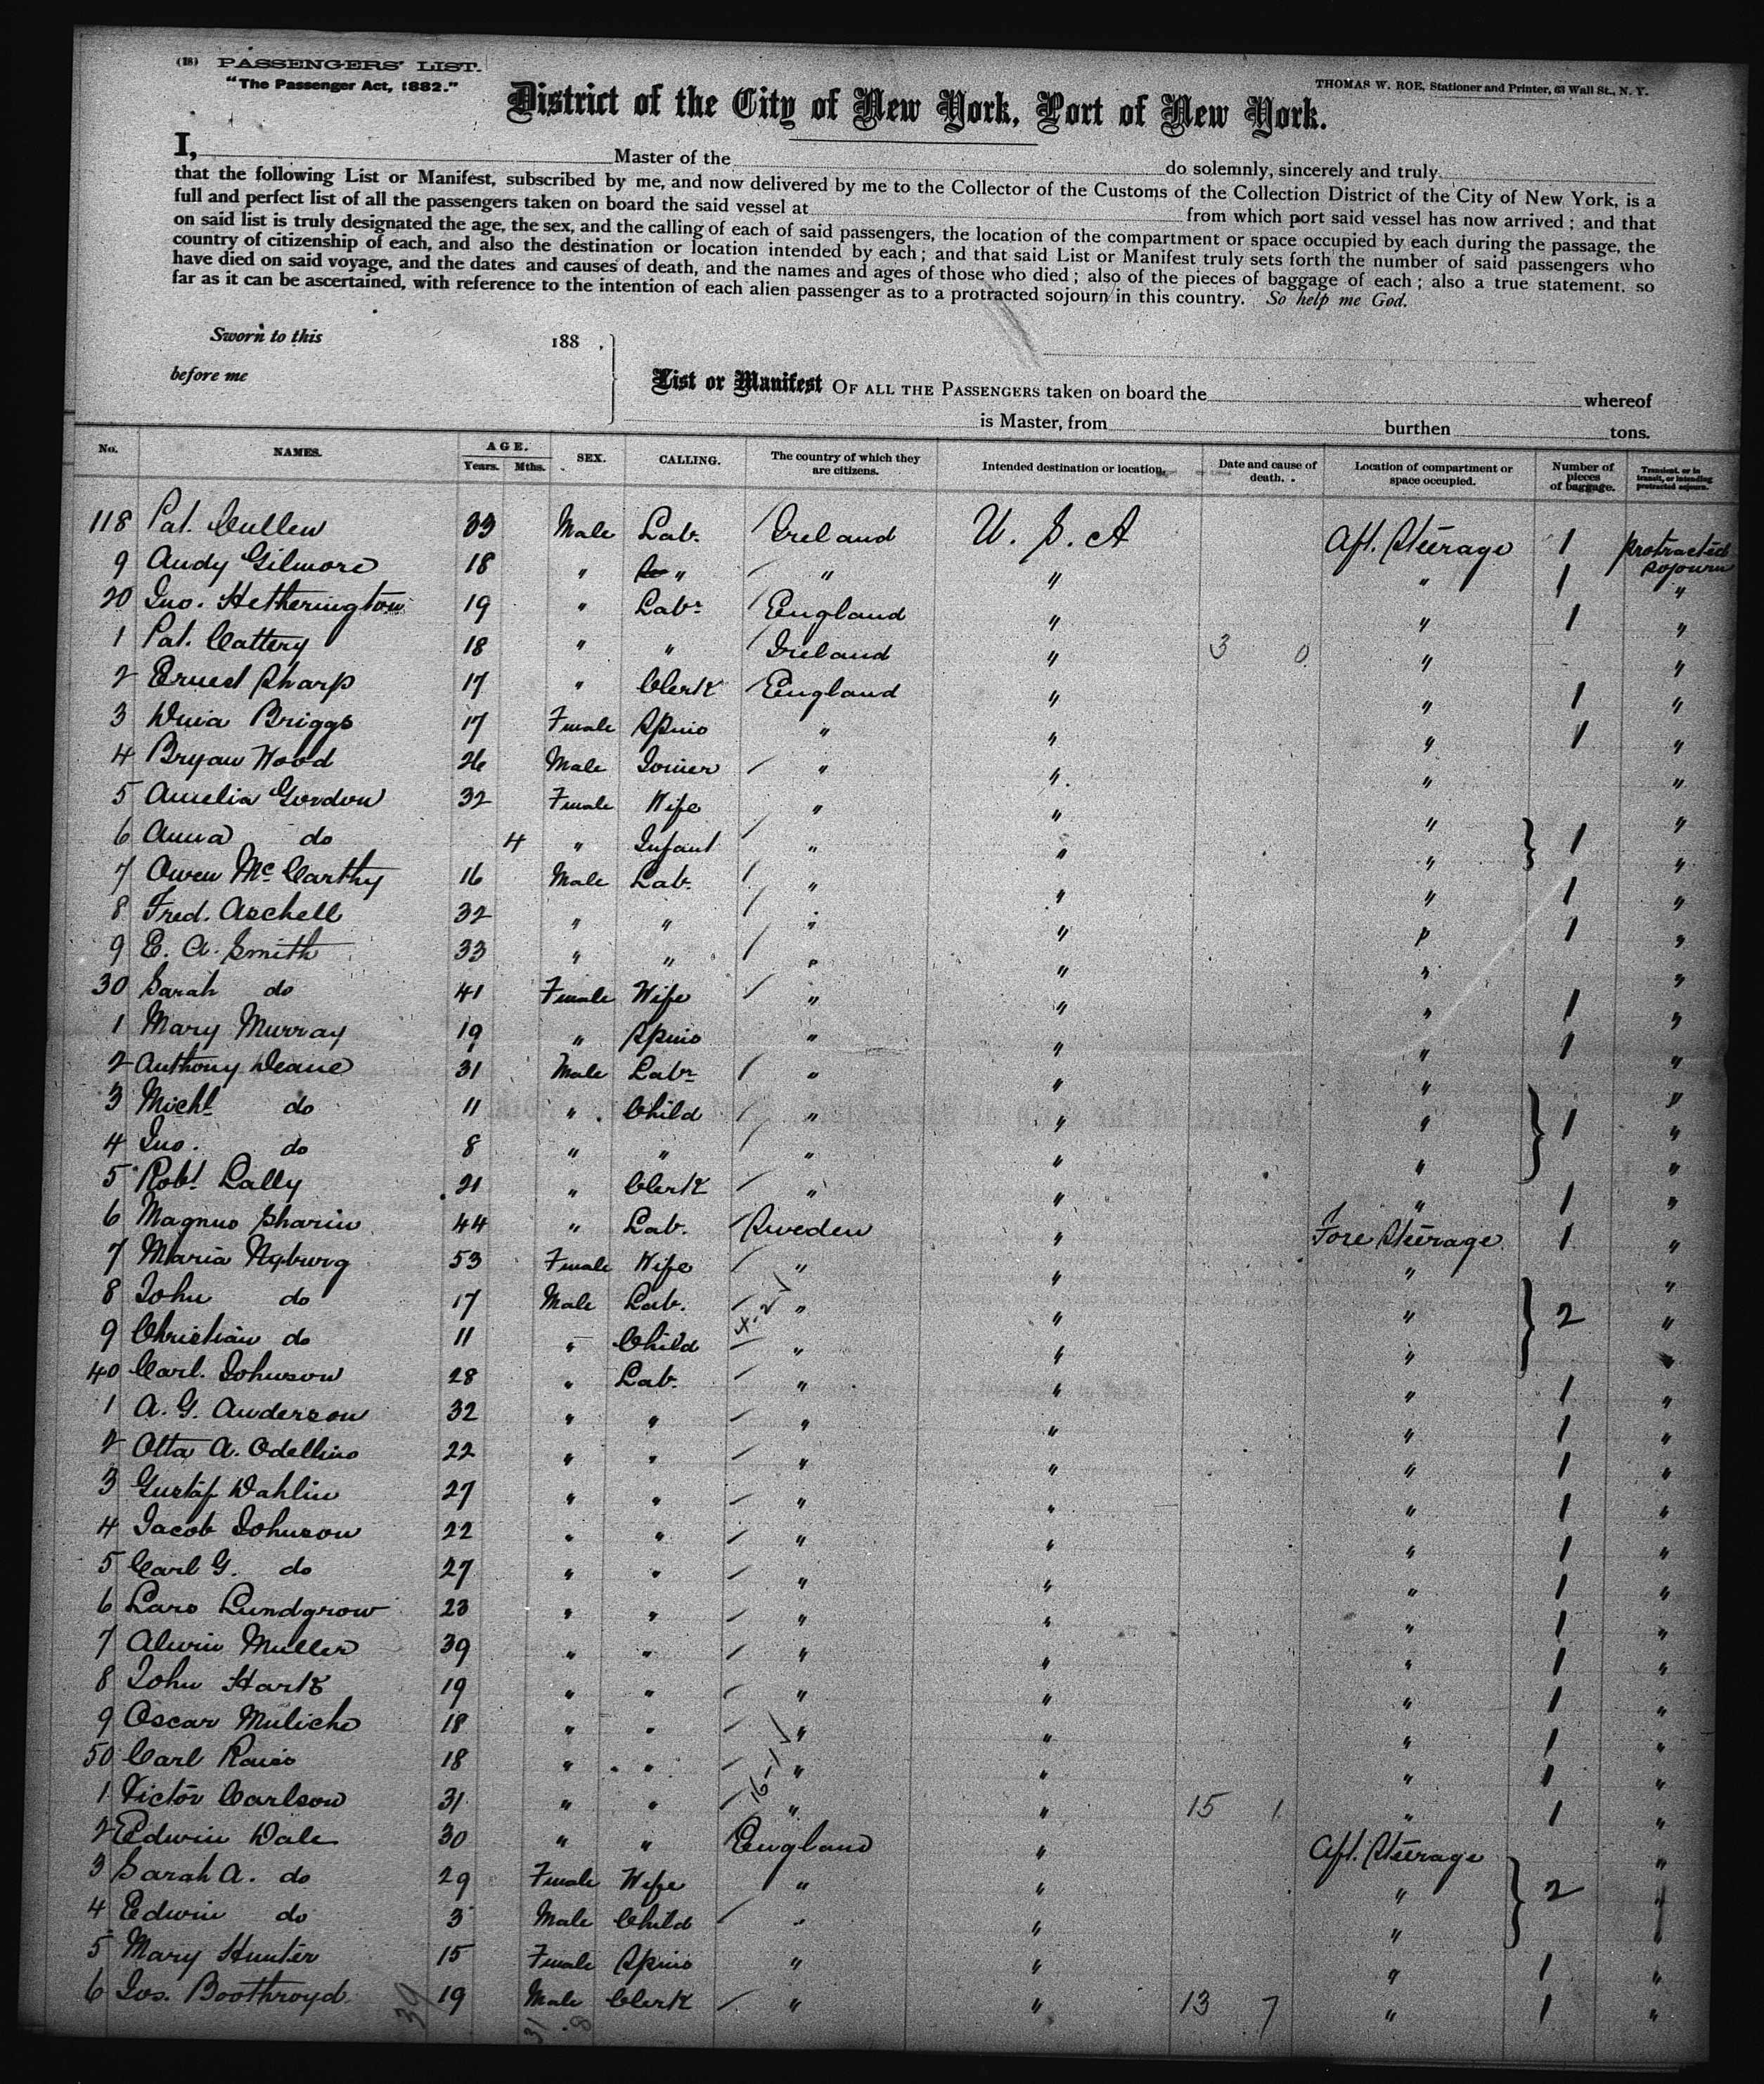 (18) PASSENGERS' LIST.
"The Passenger Act, 1882."
THOMAS W. ROE, Stationer and Printer, 63 Wall St., N. Y.
District of the City of New York, Port of New York.
I, Master of the do solemnly, sincerely and truly
that the following List or Manifest, subscribed by me, and now delivered by me to the Collector of the Customs of the Collection District of the City of New York, is a
full and perfect list of all the passengers taken on board the said vessel at from which port said vessel has now arrived; and that
on said list is truly designated the age, the sex, and the calling of each of said passengers, the location of the compartment or space occupied by each during the passage, the
country of citizenship of each, and also the destination or location intended by each; and that said List or Manifest truly sets forth the number of said passengers who
have died on said voyage, and the dates and causes of death, and the names and ages of those who died; also of the pieces of baggage of each; also a true statement, so
far as it can be ascertained, with reference to the intention of each alien passenger as to a protracted sojourn in this country. So help me God.
Sworn to this 188 .
before me
List or Manifest OF ALL THE PASSENGERS taken on board the whereof
is Master, from burthen tons.
No. NAMES. AGE. Years. Mths. SEX. CALLING. The country of which they are citizens. Intended destination or location. Date and cause of death. Location of compartment or space occupied. Number of pieces of baggage. Transient, or in transit, or intending protracted sojourn.
118 Pat. Cullen 33 Male Lab. Ireland U. S. A Aft. Steerage 1 protracted sojourn
9 Andy Gilmore 18 " " " " " 1 "
20 Jno. Hetherington 19 " Labr England " " 1 "
1 Pat. Cattery 18 " " Ireland " 3 0 " "
2 Ernest Sharp 17 " Clerk England " " 1 "
3 Briggs 17 Female Spins " " " 1 "
4 Bryan Wood 26 Male Joiner " " " "
5 Amelia Gordon 32 Female Wife " " " "
6 Anna do 4 " Infant " " " 1 "
7 Owen McCarthy 16 Male Lab. " " " 1 "
8 Fred. Aschell 32 " " " " " 1 "
9 E. A. Smith 33 " " " " " "
30 Sarah do 41 Female Wife " " " 1 "
1 Mary Murray 19 " Spins " " " 1 "
2 Anthony Deane 31 Male Labr " " " "
3 Michl do 11 " Child " " " 1 "
4 Jno. do 8 " " " " " "
5 Robt Lally 21 " Clerk " " " 1 "
6 Magnus Sharin 44 " Lab. Sweden " Fore Steerage 1 "
7 Maria Nyburg 53 Female Wife " " " "
8 John do 17 Male Lab. " " " 2 "
9 Christian do 11 " Child " " " "
40 Carl. Johnson 28 " Lab. " " " 1 "
1 A. G. Anderson 32 " " " " " 1 "
2 Otta A. Odellins 22 " " " " " 1 "
3 Gustaf Dahlin 27 " " " " " 1 "
4 Jacob Johnson 22 " " " " " 1 "
5 Carl G. do 27 " " " " " 1 "
6 Lars Lundgrow 23 " " " " " 1 "
7 Alwin Muller 39 " " " " " 1 "
8 John Hark 19 " " " " " 1 "
9 Oscar Muliche 18 " " " " " 1 "
50 Carl 18 " " " " " 1 "
1 Victor Carlson 31 " " " " 15 1 " 1 "
2 Edwin Dale 30 " " England " Aft. Steerage "
3 Sarah A. do 29 Female Wife " " " 2 "
4 Edwin do 3 Male Child " " " "
5 Mary Hunter 15 Female Spins " " " 1 "
6 Jos. Boothroyd 19 Male Clerk " " 13 7 " 1 "
39 31 8